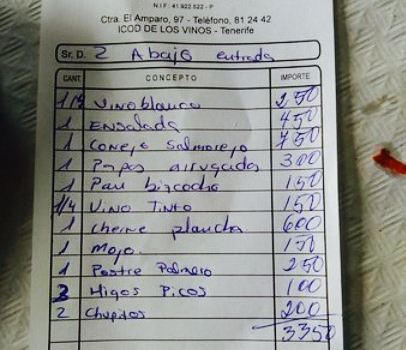 N.I.F: 41.922.522 - P
Ctra. El Amparo, 97 - Teléfono, 81 24 42
ICOD DE LOS VINOS - Tenerife
Sr. D. 2 Abajo entrada
CANT. CONCEPTO IMPORTE
1/2 Vino blanco 250
1 Ensalada 450
1 Conejo Salmorejo 750
1 Papas arrugadas 300
1 Pan bizcocho 150
1/4 Vino Tinto 150
1 cherne plancha 600
1 Mojo. 150
1 Postre Palmero 250
3 Higos Picos 100
2 Chupitos 200
3350